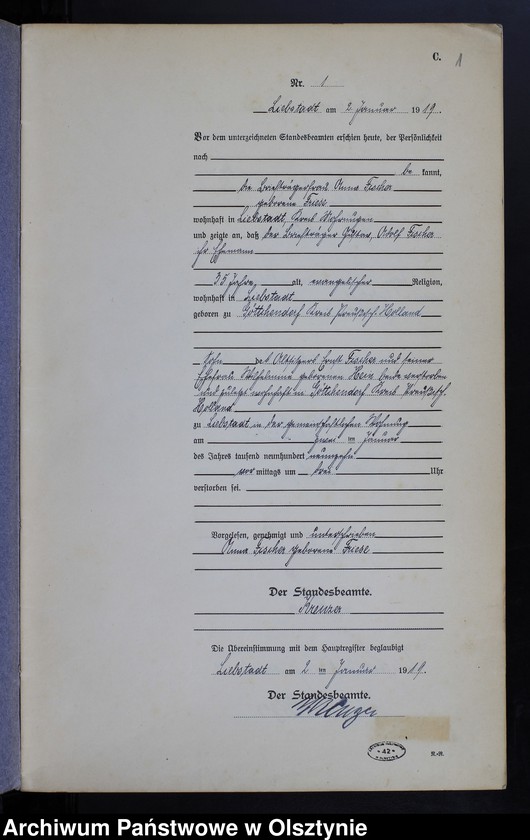 C. 1
Nr. 1
Liebstadt am 2 Januar 1919.
Vor dem unterzeichneten Standesbeamten erschien heute, der Persönlichkeit
nach
be kannt,
die Briefträgerfrau Anna Fischer
geborene Friese
wohnhaft in Liebstadt, Kreis Mohrungen
und zeigte an, daß der Briefträger Adolf Fischer
ihr Ehemann
35 Jahre, alt, evangelischer Religion,
wohnhaft in Liebstadt
geboren zu Göttchendorf Kreis Preußisch Holland
Sohn des Altsitzers Fischer und seiner
Ehefrau Wilhelmine geborenen Hein beide verstorben
und zuletzt wohnhaft in Göttchendorf Kreis Preußisch
Holland
zu Liebstadt in der gemeinschaftlichen Wohnung
am zwei ten Januar
des Jahres tausend neunhundert neunzehn
vor mittags um drei Uhr
verstorben sei.
Vorgelesen, genehmigt und unterschrieben
Anna Fischer geborene Friese
Der Standesbeamte.
Die Übereinstimmung mit dem Hauptregister beglaubigt
Liebstadt am 2 ten Januar 1919.
Der Standesbeamte.
42
Archiwum Państwowe w Olsztynie